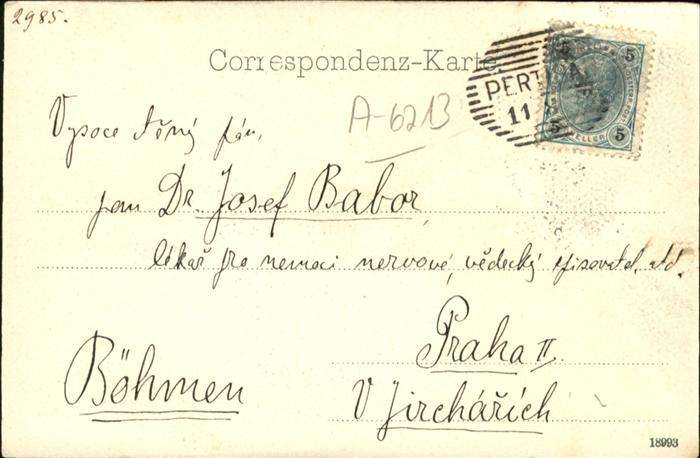 2985.
Correspondenz-Karte
5 5
PERT
11
HELLER
5 5
A-6213
Vysoce ctěný pán,
pan Dr. Josef Babor,
lékař pro nemoci nervové, vědecký spisovatel atd.
Praha II.
Böhmen
V Jirchářích
18993